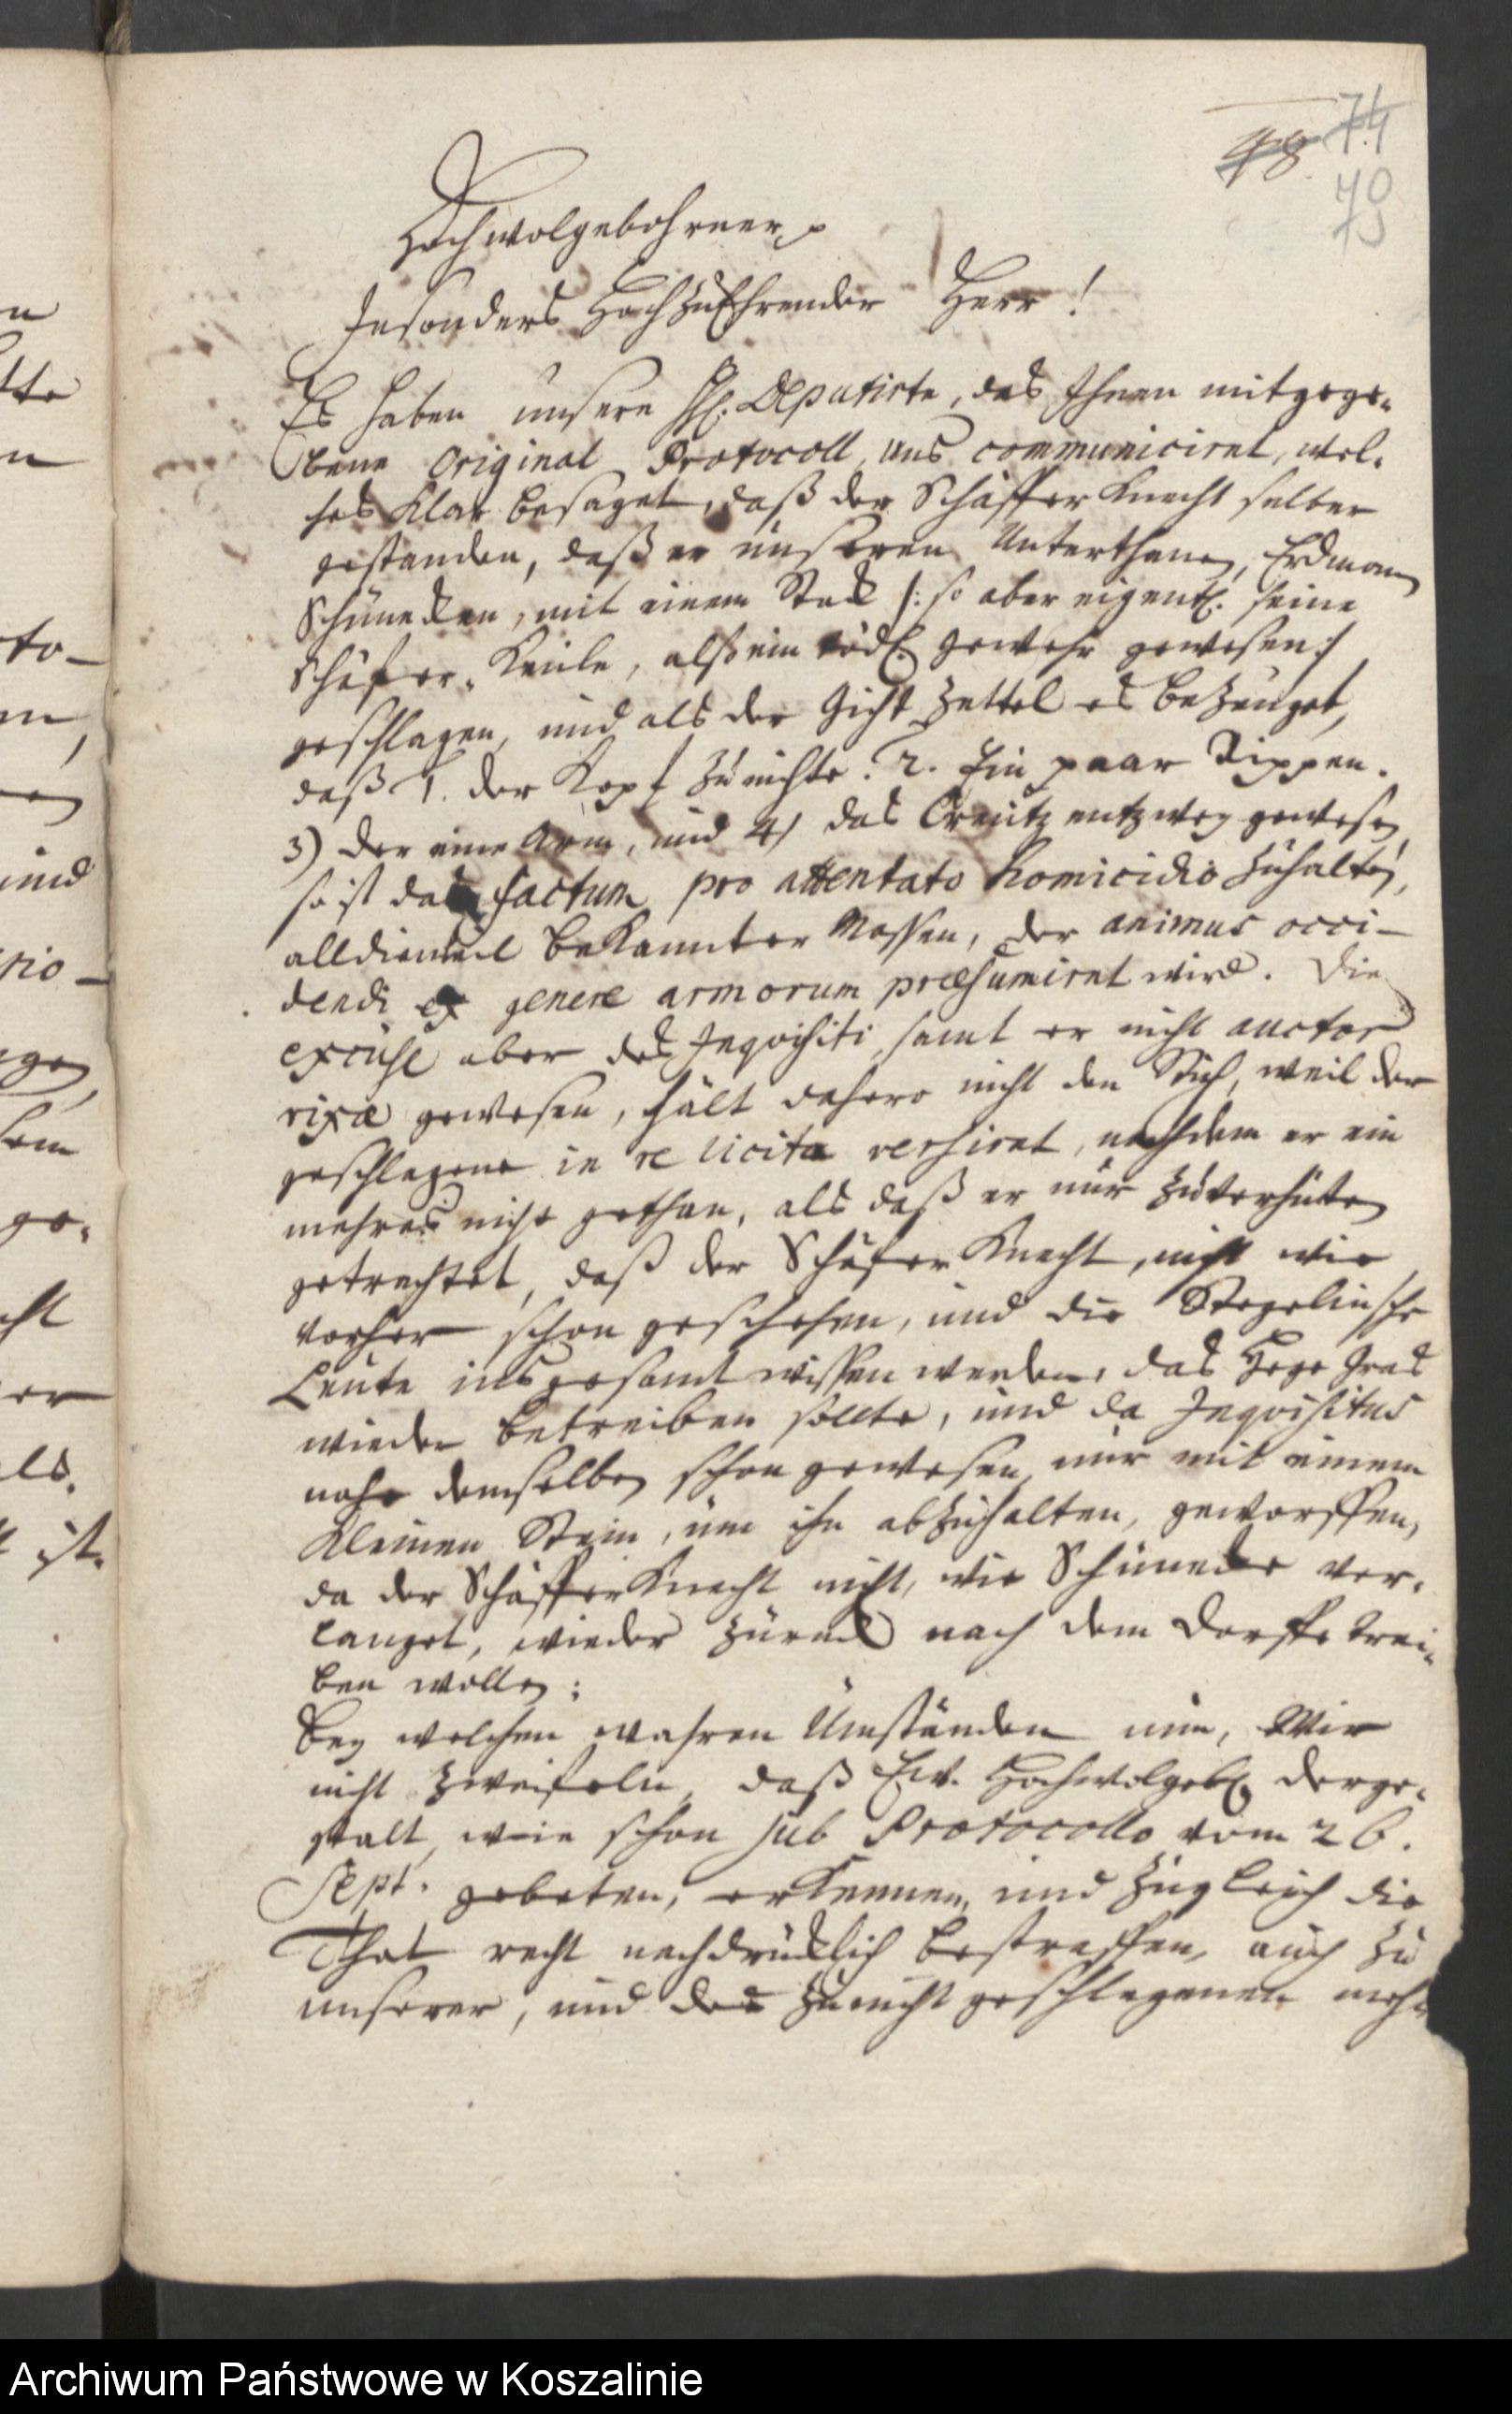 48. 74
75
Hochwolgebohrner p
Insonders HochzuEhrender Herr!
Es haben unsere HE. Deputirte, das Ihnen mitgege-
bene Original Protocoll, uns communiciret, wel-
ches Klar besaget, daß der Schäffer Knecht selber
gestanden, daß er unseren Unterthanen, Erdmann
Schünecken, mit einem Stock /: so aber eigentl. seine
Schäfer-Keule, alß ein tödl. gewehr gewesen :/
geschlagen, und als der Gicht Zettel es bezeuget,
daß 1. der Kopf zu nichte. 2. Ein paar Rippen.
3) der eine Arm, und 4) das Creutz entzwey gewesen,
so ist das factum pro attentato homicidio zuhalten,
alldieweil bekannter Massen, der animus occi-
dendi ex genere armorum præsumiret wird. Die
excuse aber des Inquisiti, samt er nicht auctor
rixæ gewesen, hält dahero nicht den Stich, weil der
geschlagene in re licita versiret, nachdem er ein
mehres nicht gethan, als daß er nur zuverhüten
getrachtet, daß der Schäfer Knecht, nicht wie
vorher schon geschehen, und die Stegelinsche
Leute ins gesamt wissen werden, das Hege Gras
wieder betreiben sollte, und da Inquisitus
nahe demselben schon gewesen, nur mit einem
Kleinen Stein, um ihn abzuhalten, geworffen,
da der Schäffer Knecht nicht, wie Schünecke ver-
langet, wieder zurück nach dem Dorffe trei-
ben wollen;
Bey welchen wahren Umständen nun, Wir
nicht zweifeln, daß Ew. Hochwolgeb. derge-
stalt, wie schon sub Protocollo vom 26.
Sept. gebeten, erkennen, und zugleich die
That recht nachdrücklich bestraffen, auch zu
unserer, und des zunicht geschlagenen
Archiwum Państwowe w Koszalinie